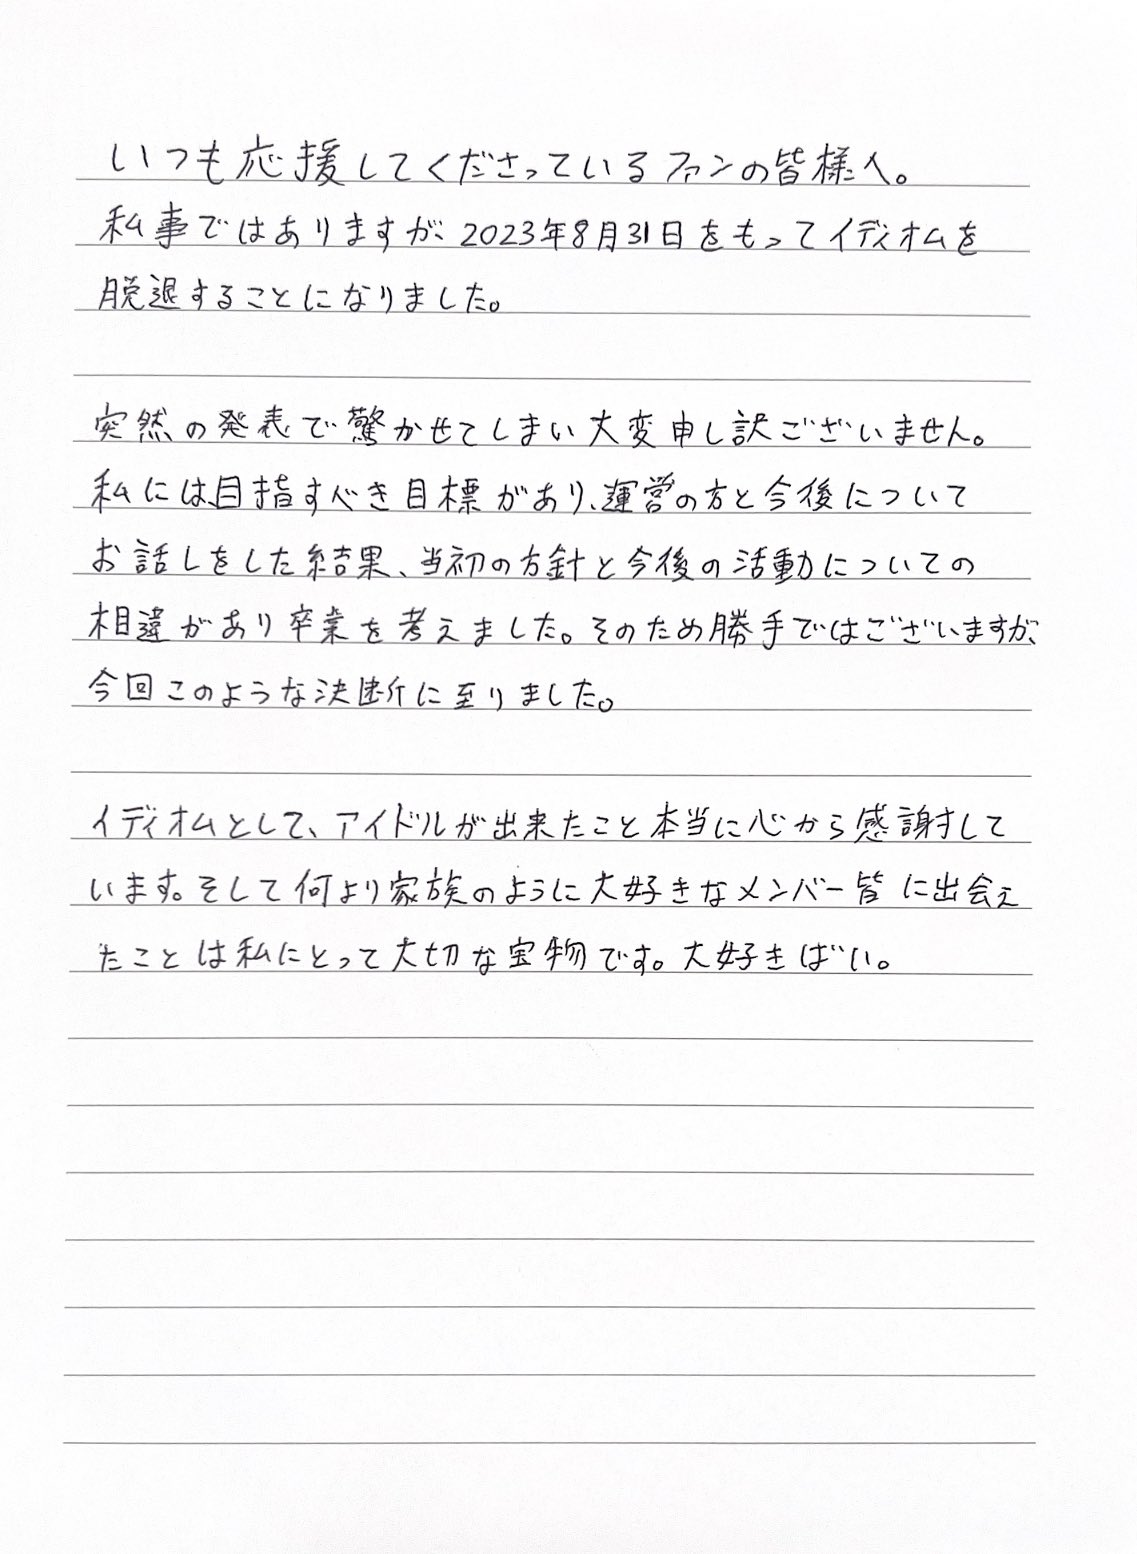 いつも応援してくださっているファンの皆様へ。
私事ではありますが、2023年8月31日をもってイディオムを
脱退することになりました。
突然の発表で驚かせてしまい大変申し訳ございません。
私には目指すべき目標があり、運営の方と今後について
お話しをした結果、当初の方針と今後の活動についての
相違があり卒業を考えました。そのため勝手ではございますが、
今回このような決断に至りました。
イディオムとして、アイドルが出来たこと本当に心から感謝して
います。そして何より家族のように大好きなメンバー皆に出会え
たことは私にとって大切な宝物です。大好きばい。